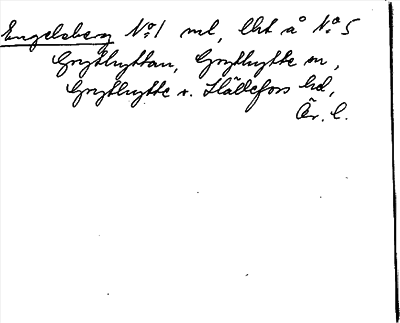 Engelsberg No1 ml, lht å No 5
Grythyttan, Grythytte sn,
Grythytte o. Hällefors hd,
Ör. l.